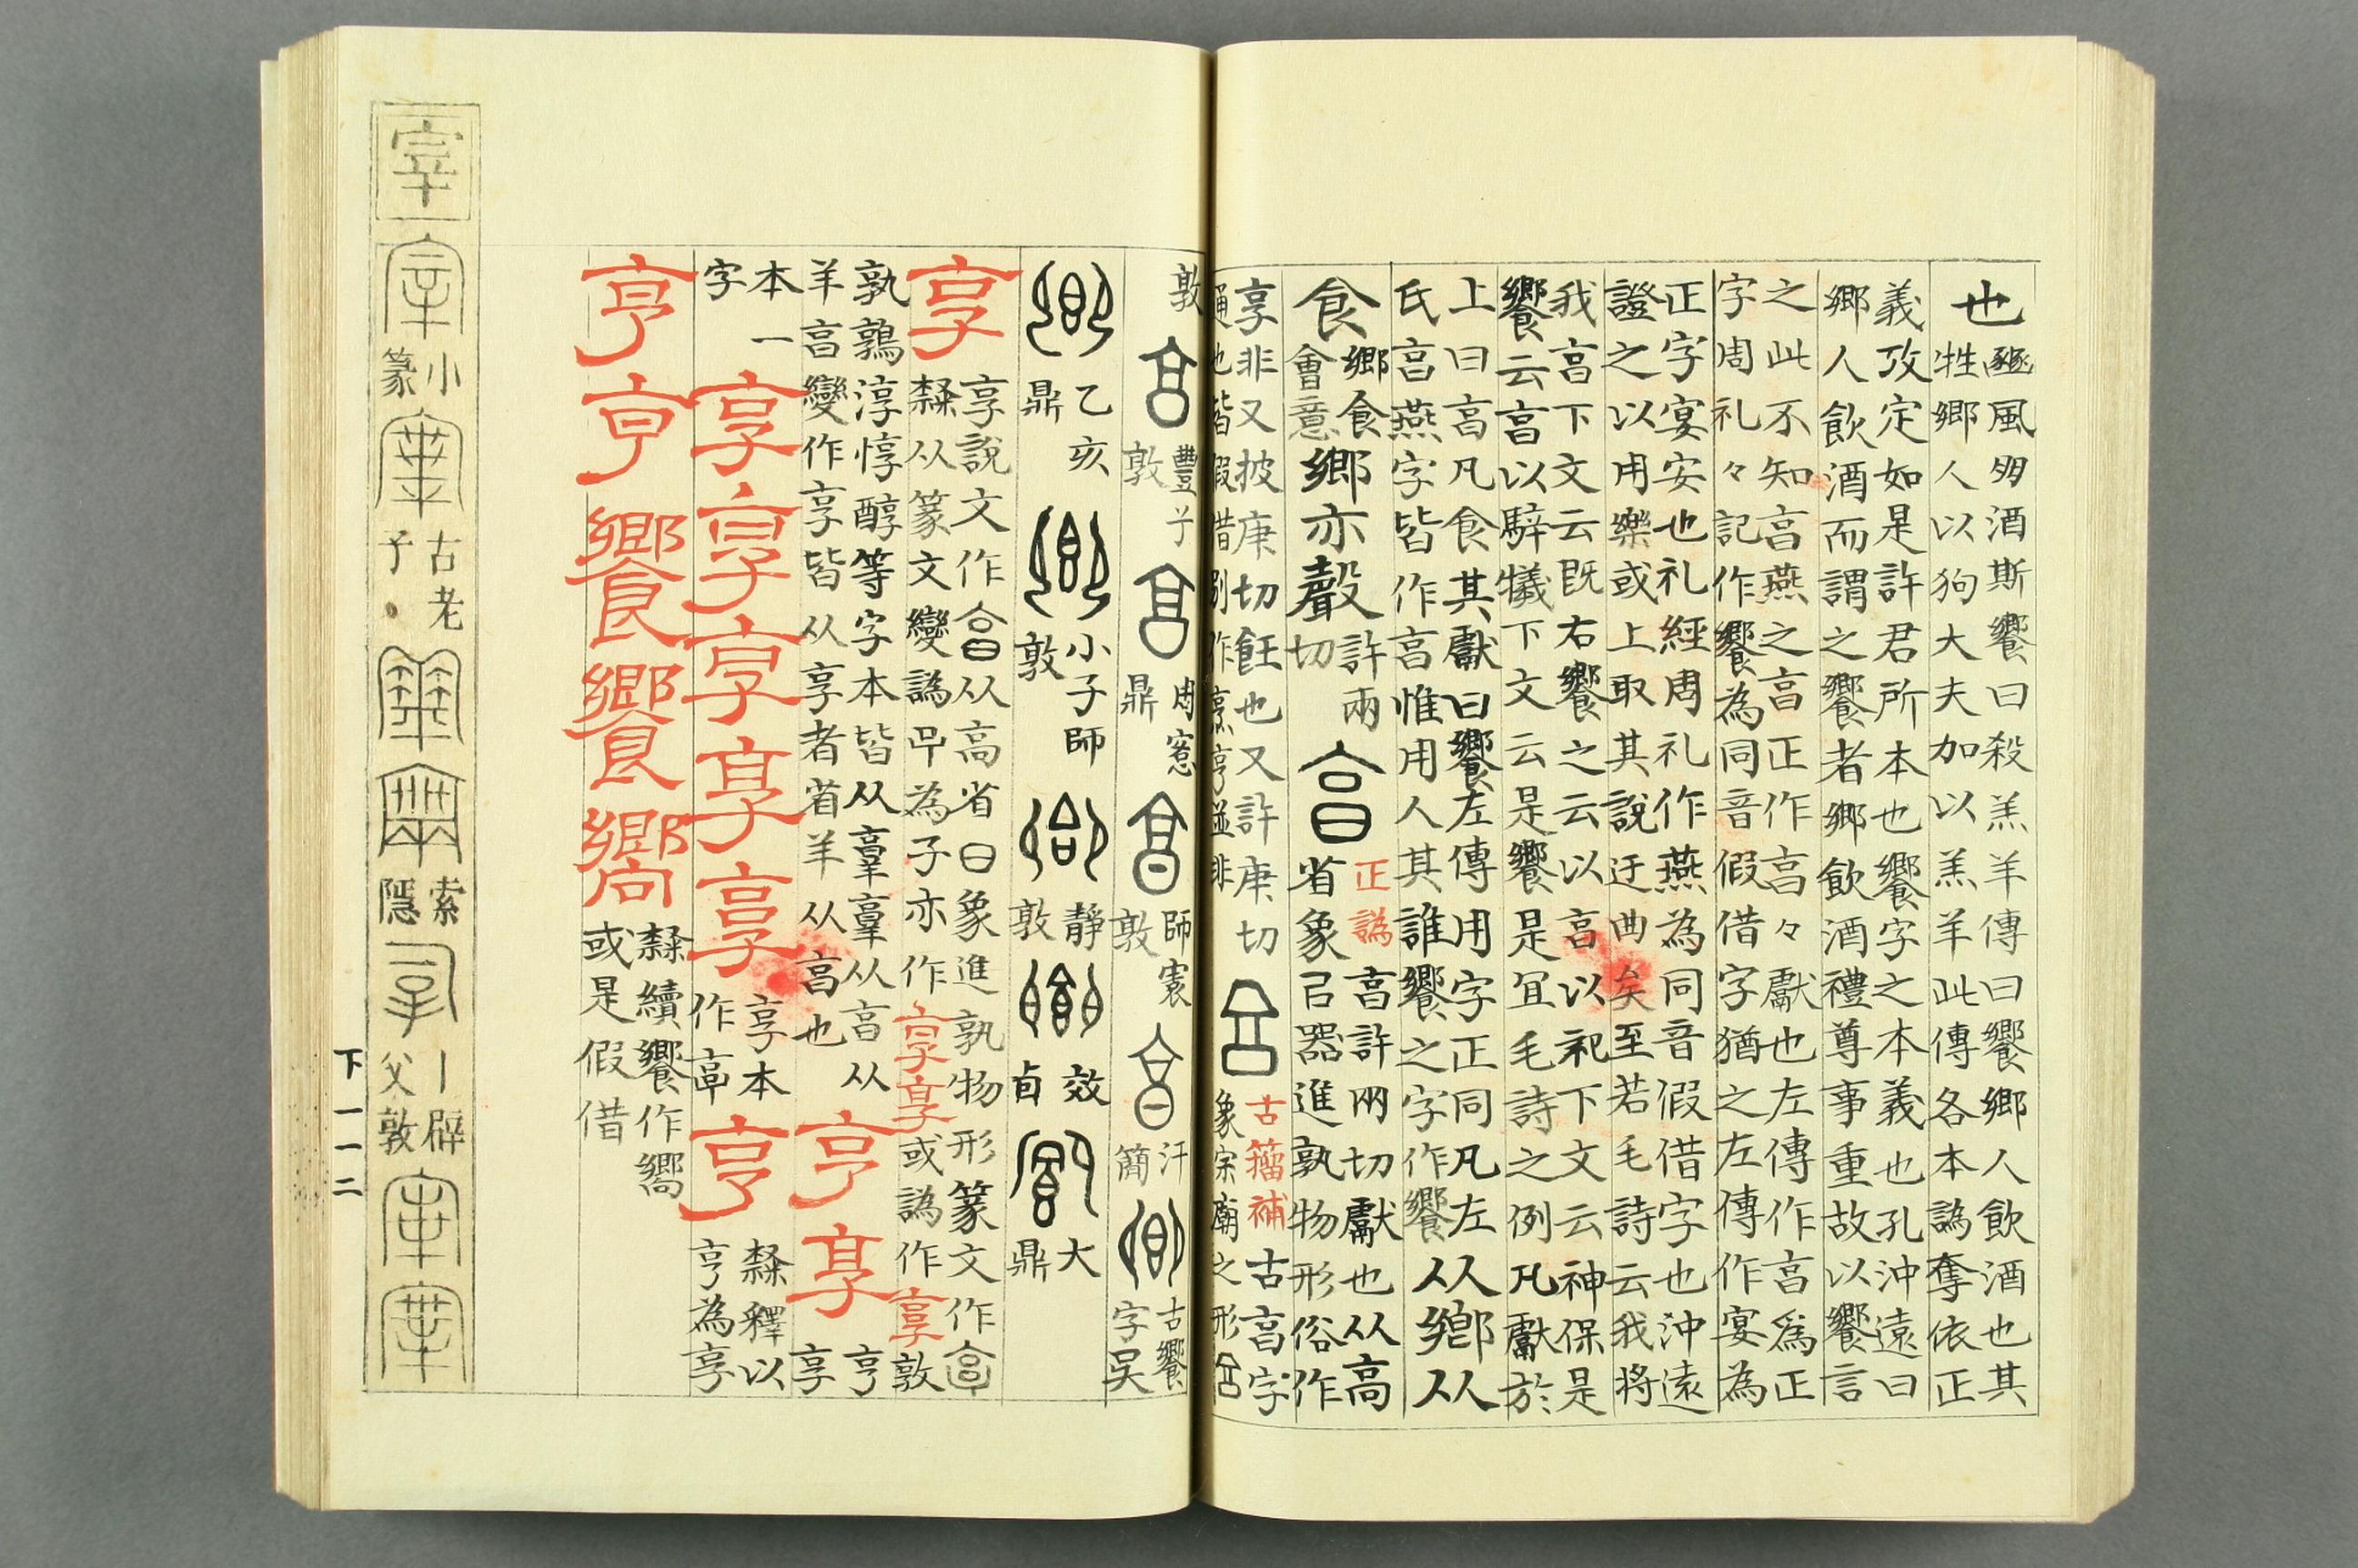 也
豳風朋酒斯饗曰殺羔羊傳曰饗鄉人飲酒也其
牲鄉人以狗大夫加以羔羊此傳各本譌奪依正
義攷定如是許君所本也饗字之本義也孔沖遠曰
鄉人飲酒而謂之饗者鄉飲酒禮尊事重故以饗言
之此不知亯燕之亯正作亯々獻也左傳作亯爲正
字周礼々記作饗為同音假借字猶之左傳作宴為
正字宴安也礼經周礼作燕為同音假借字也沖遠
證之以用樂或上取其說迂曲矣至若毛詩云我將
我亯下文云既右饗之云以亯以祀下文云神保是
饗云亯以騂犧下文云是饗是宜毛詩之例凡獻於
上曰亯凡食其獻曰饗左傳用字正同凡左
氏亯燕字皆作亯惟用人其誰饗之字作饗
从鄉从
食
鄉食
會意
鄉亦聲
許兩
切
亯
正譌亯許兩切獻也从高
省象曰器進孰物形俗作
享非又披庚切飪也又許庚切
通也皆假借別作烹亨竝非
古籀補古亯字
象宗廟之形
敦
豐兮
敦
周窓
鼎
師寰
敦
汗
簡
古饗
字吴
乙亥
鼎
小子師
敦
靜
敦
效
卣
大
鼎
享
享說文作亯从高省曰象進孰物形篆文作亯
隸从篆文變譌為子亦作享享或譌作享敦
孰鶉淳惇醇等字本皆从𦎫𦎫从亯从
羊亯變作享皆从享者省羊从亯也
亨享
亨
享
本一
字
享享享享享
享本
作亯
亨
隸釋以
亨為享
亨亨饗饗嚮
隸續饗作嚮
或是假借
小
篆
古老
子
索
隱
辟
父敦
下一一二